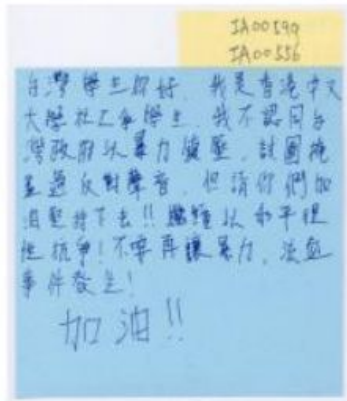 IA00590
IA00556
台灣學生你好, 我是香港中文
大學社工系學生, 我不認同台
灣政府以暴力鎮壓, 試圖掩
蓋過反對聲音, 但請你們加
油堅持下去!! 繼續以和平理
性抗爭! 不要再讓暴力, 流血
事件發生!
加油!!